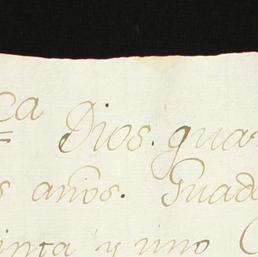 ca Dios. guar
s años. Guada
inta y uno